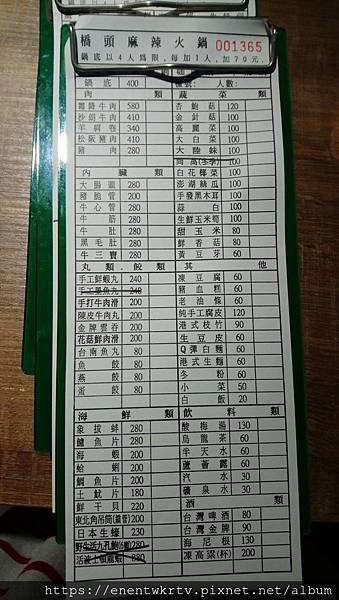 橋頭麻辣火鍋 001365
鍋底以4人為限,每加1人,加70元.
鍋底 400 人數:
肉類 蔬菜類
霜降牛肉 580 杏鮑菇 120
沙朗牛肉 410 金針菇 100
羊肩卷 340 高麗菜 100
松阪豬肉 410 大白菜 100
豬肉 280 大陸妹 100
茼蒿(冬季) 100
內臟類 白花椰菜 100
大腸頭 280 澎湖絲瓜 100
豬脆管 200 手發黑木耳 100
牛心管 280 蒜白 100
牛筋 280 生鮮玉米筍 100
牛肚 280 甜玉米 80
黑毛肚 280 鮮香菇 80
牛三寶 280 黃豆芽 60
丸類.餃類 其他
手工鮮蝦丸 240 凍豆腐 60
手工墨魚丸 240 豬血糕 60
手打牛肉滑 200 老油條 60
陳皮牛肉丸 200 純手工腐皮 120
金牌雲吞 200 港式枝竹 90
花菇鮮肉滑 200 生豆皮 60
台南魚丸 80 Q彈白麵 60
魚餃 80 港式生麵 60
燕餃 80 冬粉 60
蛋餃 80 小菜 50
白飯 20
海鮮類 飲料類
象拔蚌 280 酸梅湯 130
鱸魚片 280 烏龍茶 60
海蝦 200 半天水 60
蛤蜊 200 蘆薈露 60
鯛魚片 200 汽水 30
土魠片 180 礦泉水 30
鮮干貝 220 酒類
東北角吊筒(鎖管) 200 台灣啤酒 80
日本生蠔 230 台灣金牌 90
野生活九孔鮑(6顆) 280 海尼根 130
活波士頓龍蝦 880 凍高粱(杯) 200
https://enentwkrtv.pixnet.net/album